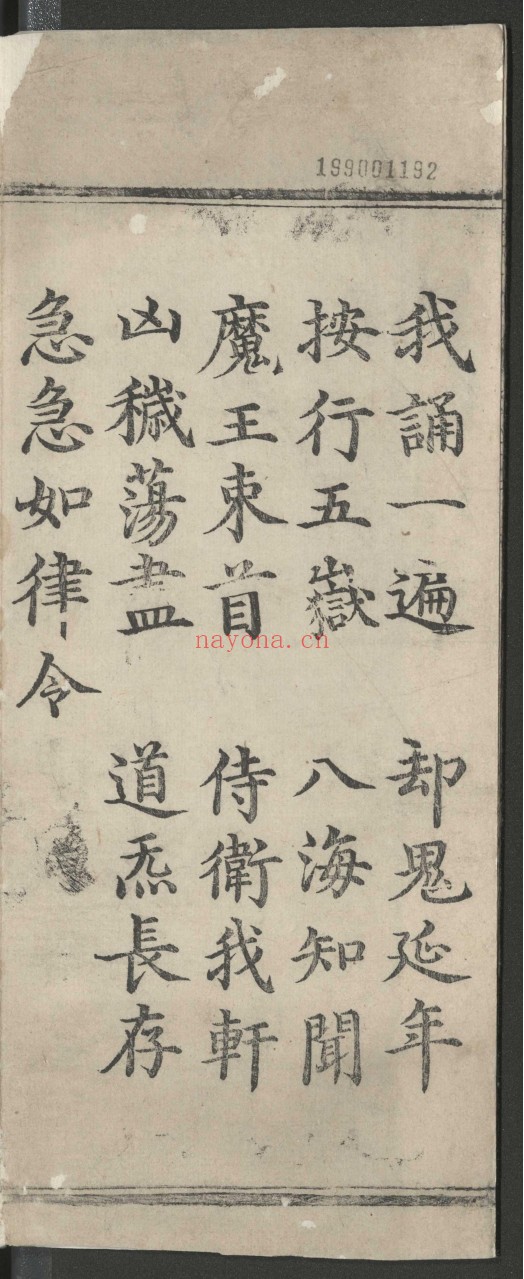 199001192
我誦一遍 却鬼延年
按行五嶽 八海知聞
魔王束首 侍衛我軒
凶穢蕩盡 道炁長存
急急如律令
nayona.cn